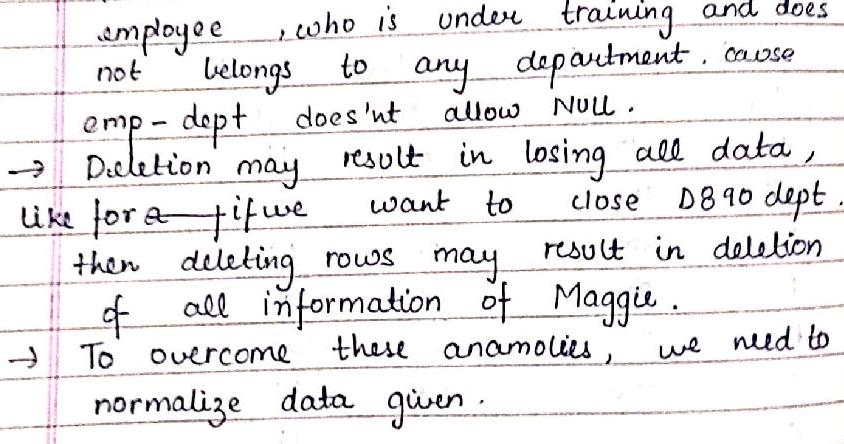 employee , who is under training and does
not belongs to any department. cause
emp-dept does'nt allow NULL.
→ Deletion may result in losing all data,
like for a if we want to close D890 dept.
then deleting rows may result in deletion
of all information of Maggie.
→ To overcome these anamolies, we need to
normalize data given.